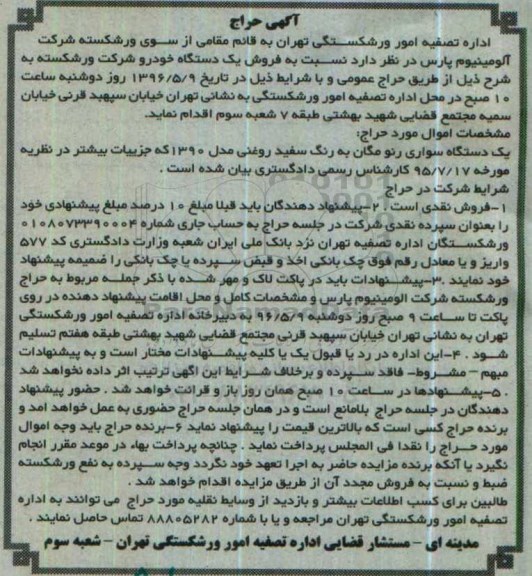 آگهی حراج
اداره تصفیه امور ورشکستگی تهران به قائم مقامی از سوی ورشکسته شرکت
آلومینیوم پارس در نظر دارد نسبت به فروش یک دستگاه خودرو شرکت ورشکسته به
شرح ذیل از طریق حراج عمومی و با شرایط ذیل در تاریخ ۱۳۹۶/۵/۹ روز دوشنبه ساعت
۱۰ صبح در محل اداره تصفیه امور ورشکستگی به نشانی تهران خیابان سپهبد قرنی خیابان
سمیه مجتمع قضایی شهید بهشتی طبقه ۷ شعبه سوم اقدام نماید.
مشخصات اموال مورد حراج:
یک دستگاه سواری رنو مگان به رنگ سفید روغنی مدل ۱۳۹۰که جزییات بیشتر در نظریه
مورخه ۹۵/۷/۱۷ کارشناس رسمی دادگستری بیان شده است .
شرایط شرکت در حراج
۱-فروش نقدی است . ۲-پیشنهاد دهندگان باید قبلا مبلغ ۱۰ درصد مبلغ پیشنهادی خود
را بعنوان سپرده نقدی شرکت در جلسه حراج به حساب جاری شماره ۰۱۰۸۰۷۳۳۹۰۰۰۴
ورشکستگان اداره تصفیه تهران نزد بانک ملی ایران شعبه وزارت دادگستری کد ۵۷۷
واریز و یا معادل رقم فوق چک بانکی اخذ و قبض سپرده یا چک بانکی را ضمیمه پیشنهاد
خود نمایند .۳-پیشنهادات باید در پاکت لاک و مهر شده با ذکر جمله مربوط به حراج
ورشکسته شرکت الومینیوم پارس و مشخصات کامل و محل اقامت پیشنهاد دهنده در روی
پاکت تا ساعت ۹ صبح روز دوشنبه ۹۶/۵/۹ به دبیرخانه اداره تصفیه امور ورشکستگی
تهران به نشانی تهران خیابان سپهبد قرنی مجتمع قضایی شهید بهشتی طبقه هفتم تسلیم
شود . ۴-این اداره در رد یا قبول یک یا کلیه پیشنهادات مختار است و به پیشنهادات
مبهم – مشروط- فاقد سپرده و برخلاف شرایط این آگهی ترتیب اثر داده نخواهد شد
. ۵-پیشنهادها در ساعت ۱۰ صبح همان روز باز و قرائت خواهد شد . حضور پیشنهاد
دهندگان در جلسه حراج بلامانع است و در همان جلسه حراج حضوری به عمل خواهد آمد و
برنده حراج کسی است که بالاترین قیمت را پیشنهاد نماید ۶-برنده حراج باید وجه اموال
مورد حراج را نقدا فی المجلس پرداخت نماید . چنانچه پرداخت بهاء در موعد مقرر انجام
نگیرد یا آنکه برنده مزایده حاضر به اجرا تعهد خود نگردد وجه سپرده به نفع ورشکسته
ضبط و نسبت به فروش مجدد آن از طریق مزایده اقدام خواهد شد .
طالبین برای کسب اطلاعات بیشتر و بازدید از وسایط نقلیه مورد حراج می توانند به اداره
تصفیه امور ورشکستگی تهران مراجعه و یا با شماره ۸۸۸۰۵۲۸۲ تماس حاصل نمایند .
مدینه ای – مستشار قضایی اداره تصفیه امور ورشکستگی تهران – شعبه سوم